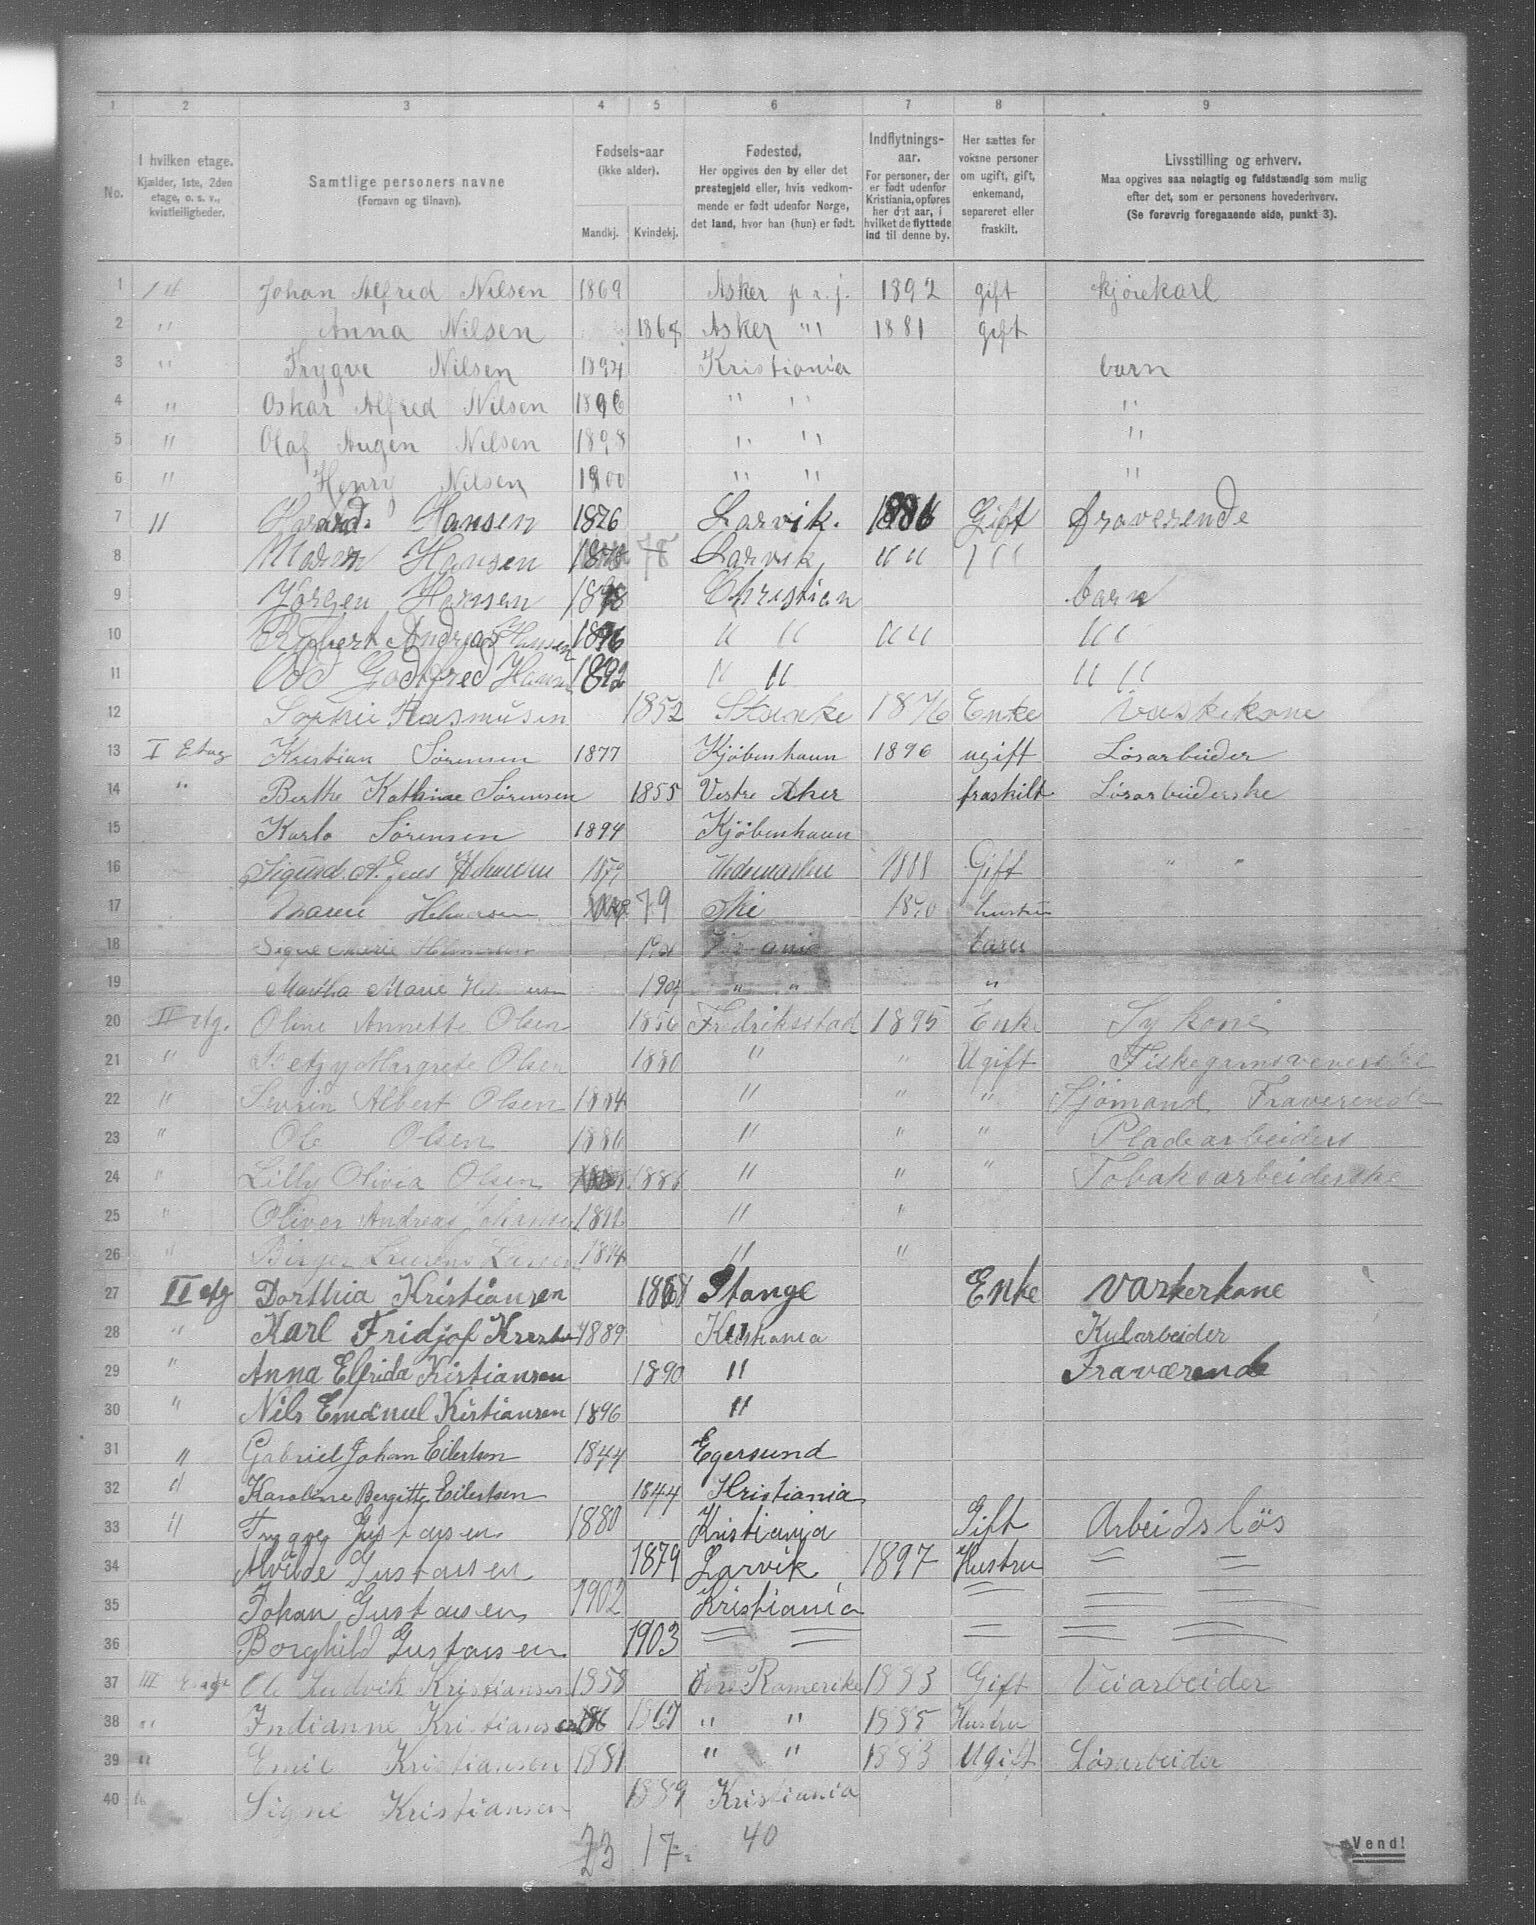 1 2 3 4 5 6 7 8 9
No.
I hvilken etage.
Kjælder, 1ste, 2den
etage, o. s. v.,
kvistleiligheder.
Samtlige personers navne
(Fornavn og tilnavn).
Fødsels-aar
(ikke alder).
Mandkj. Kvindekj.
Fødested.
Her opgives den by eller det
prestegjeld eller, hvis vedkom-
mende er født udenfor Norge,
det land, hvor han (hun) er født.
Indflytnings-
aar.
For personer, der
er født udenfor
Kristiania, opføres
her det aar, i
hvilket de flyttede
ind til denne by.
Her sættes for
voksne personer
om ugift, gift,
enkemand,
separeret eller
fraskilt.
Livsstilling og erhverv.
Maa opgives saa nøiagtig og fuldstændig som mulig
efter det, som er personens hovederhverv.
(Se forøvrig foregaaende side, punkt 3).
1 Johan Alfred Nilsen 1869 Asker p r. j. 1892 gift kjørekarl
2 " Anna Nilsen 1864 Asker " 1881 gift
3 " Trygve Nilsen 1894 Kristiania barn
4 " Oskar Alfred Nilsen 1896 " " "
5 " Olaf Augen Nilsen 1898 " " "
6 " Henri Nilsen 1900 " " "
7 " Hansen 1876 Larvik. 1886 Gift fraverende
8 Hansen 78 Larvik " " " "
9 Jörgen Hansen 1898 Christian barn
10 Robert Andreas Hansen 1896 " " " " " "
11 Odd Godtfred Hansen " " " "
12 Sophie Rasmusen 1852 Stanke 1876 Enke Vaskekone
13 I Etag Kristian Sørensen 1877 Kjöbenhavn 1896 ugift Løsarbeider
14 " Berthe Kathrine Sørensen 1855 Vestre Aker fraskilt Løsarbeiderske
15 Karlo Sørensen 1894 Kjöbenhavn
16 Sigurd Hedemarken 1888 Gift " "
17 Maren 79 Ski 1890 hustru
18 Signe Marie barn
19 Martha Marie " " "
20 II etg. Oline Annette Olsen 1856 Fredriksstad 1895 Enke Sykone
21 " Margrete Olsen 1880 " " Ugift Fiskegarnsveverske
22 " Sevrin Albert Olsen 1884 " " " Sjömand Fraverende
23 " Ole Olsen 1886 " " " Pladearbeiders
24 " Lilly Olivia Olsen 1888 " " " Tobaksarbeiderske
25 " Oliver Andreas Johansen " "
26 " Birger Laurens Larsen 1894 " "
27 II etg Dorthia Kristiansen 1868 Stange Enke Varkerkone
28 " Karl Fridjof Kristia 1889 Kristiania Kularbeider
29 " Anna Elfrida Kistiansen 1890 " Fraværende
30 " Nils Emanuel Kistiansen 1896 "
31 " Gabriel Johan Eilertsen 1844 Egersund
32 " Karoline Bergitte Eilertsen 1844 Kristiania
33 " Trygve Gustavsen 1880 Kristiania Gift Arbeidslös
34 Alvilde Gustavsen 1879 Larvik 1897 Hustru = =
35 Johan Gustavsen 1902 Kristiania = = =
36 Borghild Gustavsen 1903 = = = = = =
37 III Etage Ole Ludvik Kristiansen 1858 övre Romerike 1883 Gift Veiarbeider
38 " Indianne Kristiansen 1867 " " 1885 Hustru
39 " Emil Kristiansen 1881 " " 1883 Ugift Løsarbeider
40 " Signe Kristiansen 1889 Kristiania
23 17 40
Vend!